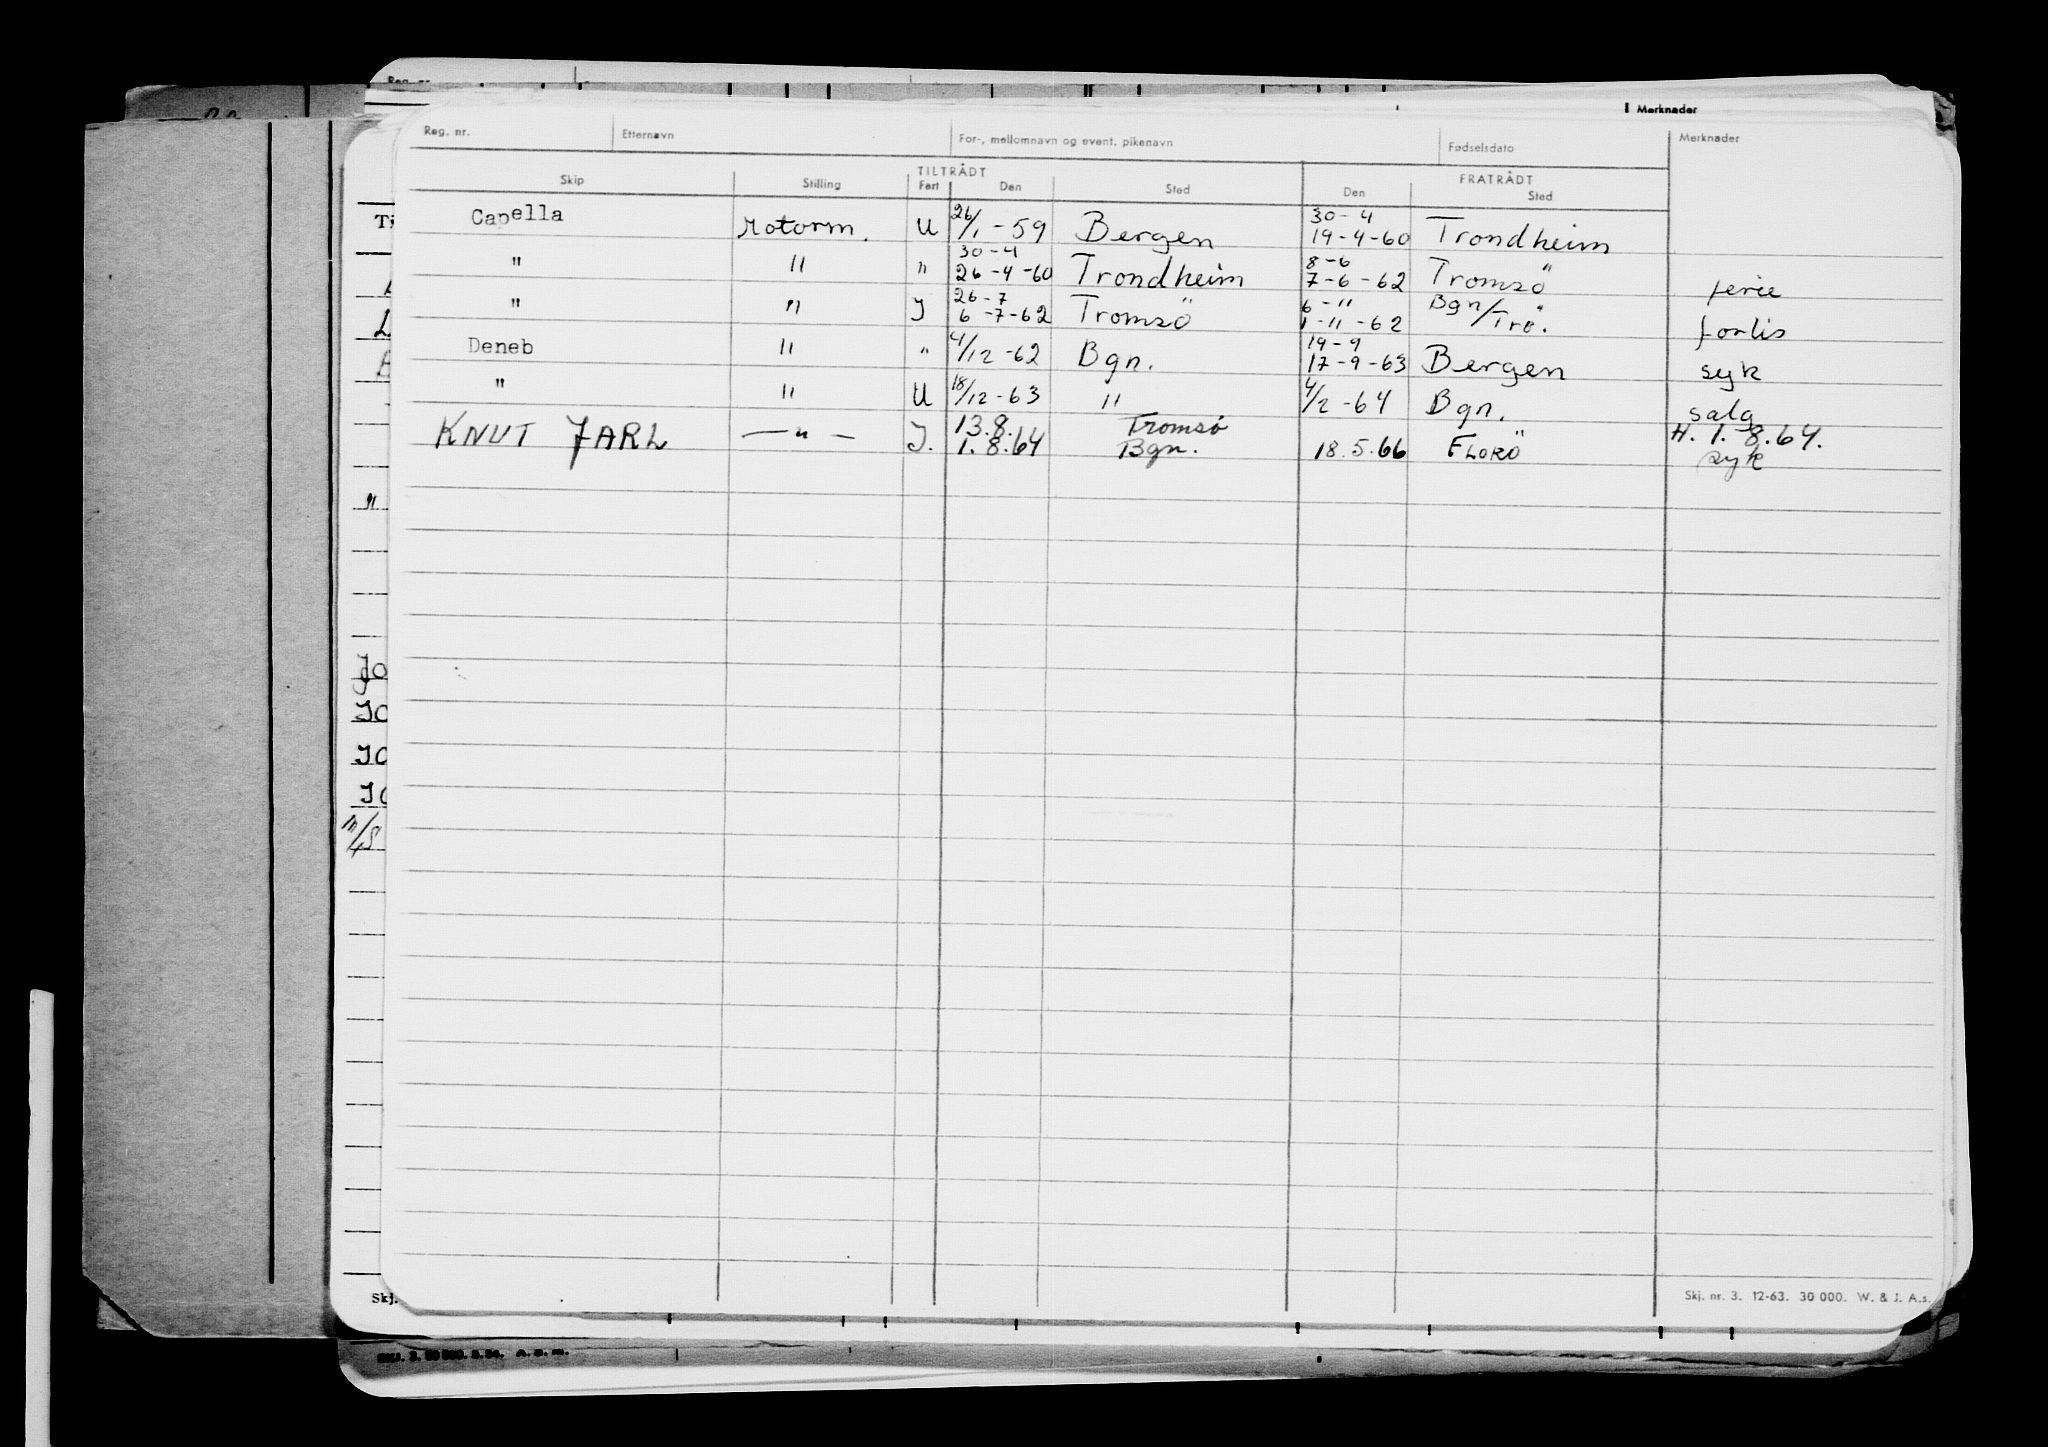 Merknader
Reg. nr. Etternavn For-, mellomnavn og event. pikenavn Fødselsdato Merknader
TILTRÅDT FRATRÅDT
Skip Stilling Fart Den Sted Den Sted
26/1 30-4
Capella Motorm. U -59 Bergen 19-4-60 Trondheim
30-4 8-6
" " " 26-4-60 Trondheim 7-6-62 Tromsö ferie
26-7 6-11 Bgn/
" " J 6-7-62 Tromsö 1-11-62 Trö. forlis
19-9
Deneb " " 4/12-62 Bgn. 17-9-63 Bergen syk
" " U 18/12-63 " 4/2-64 Bgn. salg
13.8. Tromsö H. 1.8.64.
KNUT JARL —"— J. 1.8.64 Bgn. 18.5.66 FLORÖ syk
Skj. nr. 3. 12-63. 30 000. W. & J. A.s.
Skj.